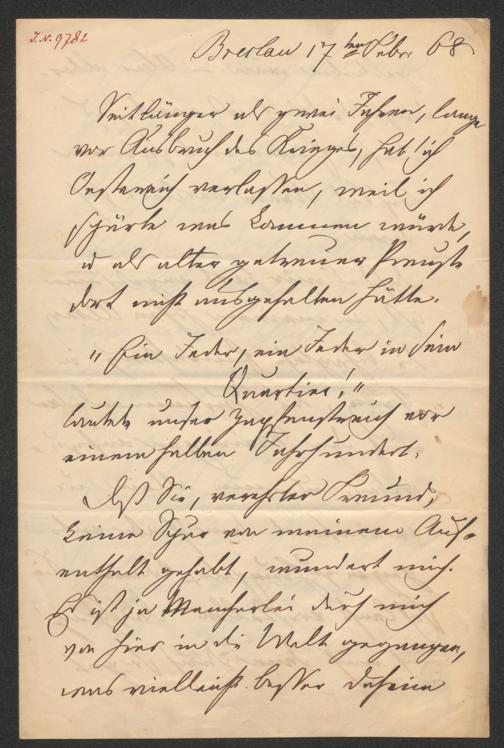 J. N. 9782
Breslau 17ten Febr 68
Seit länger als zwei Jahren, lange
vor Ausbruch des Krieges, hab' ich
Oesterreich verlassen, weil ich
spürte was kommen würde,
u als alter getreuer Preuße
dort nicht ausgehalten hätte.
"Ein Jeder, ein Jeder in sein
Quartier!"
lautete unser Zapfenstreich vor
einem halben Jahrhundert.
Daß Sie, verehrter Freund,
keine Spur von meinem Auf-
enthalt gehabt, wundert mich.
Es ist ja Mancherlei durch mich
von hier in die Welt gegangen,
was vielleicht besser daheim